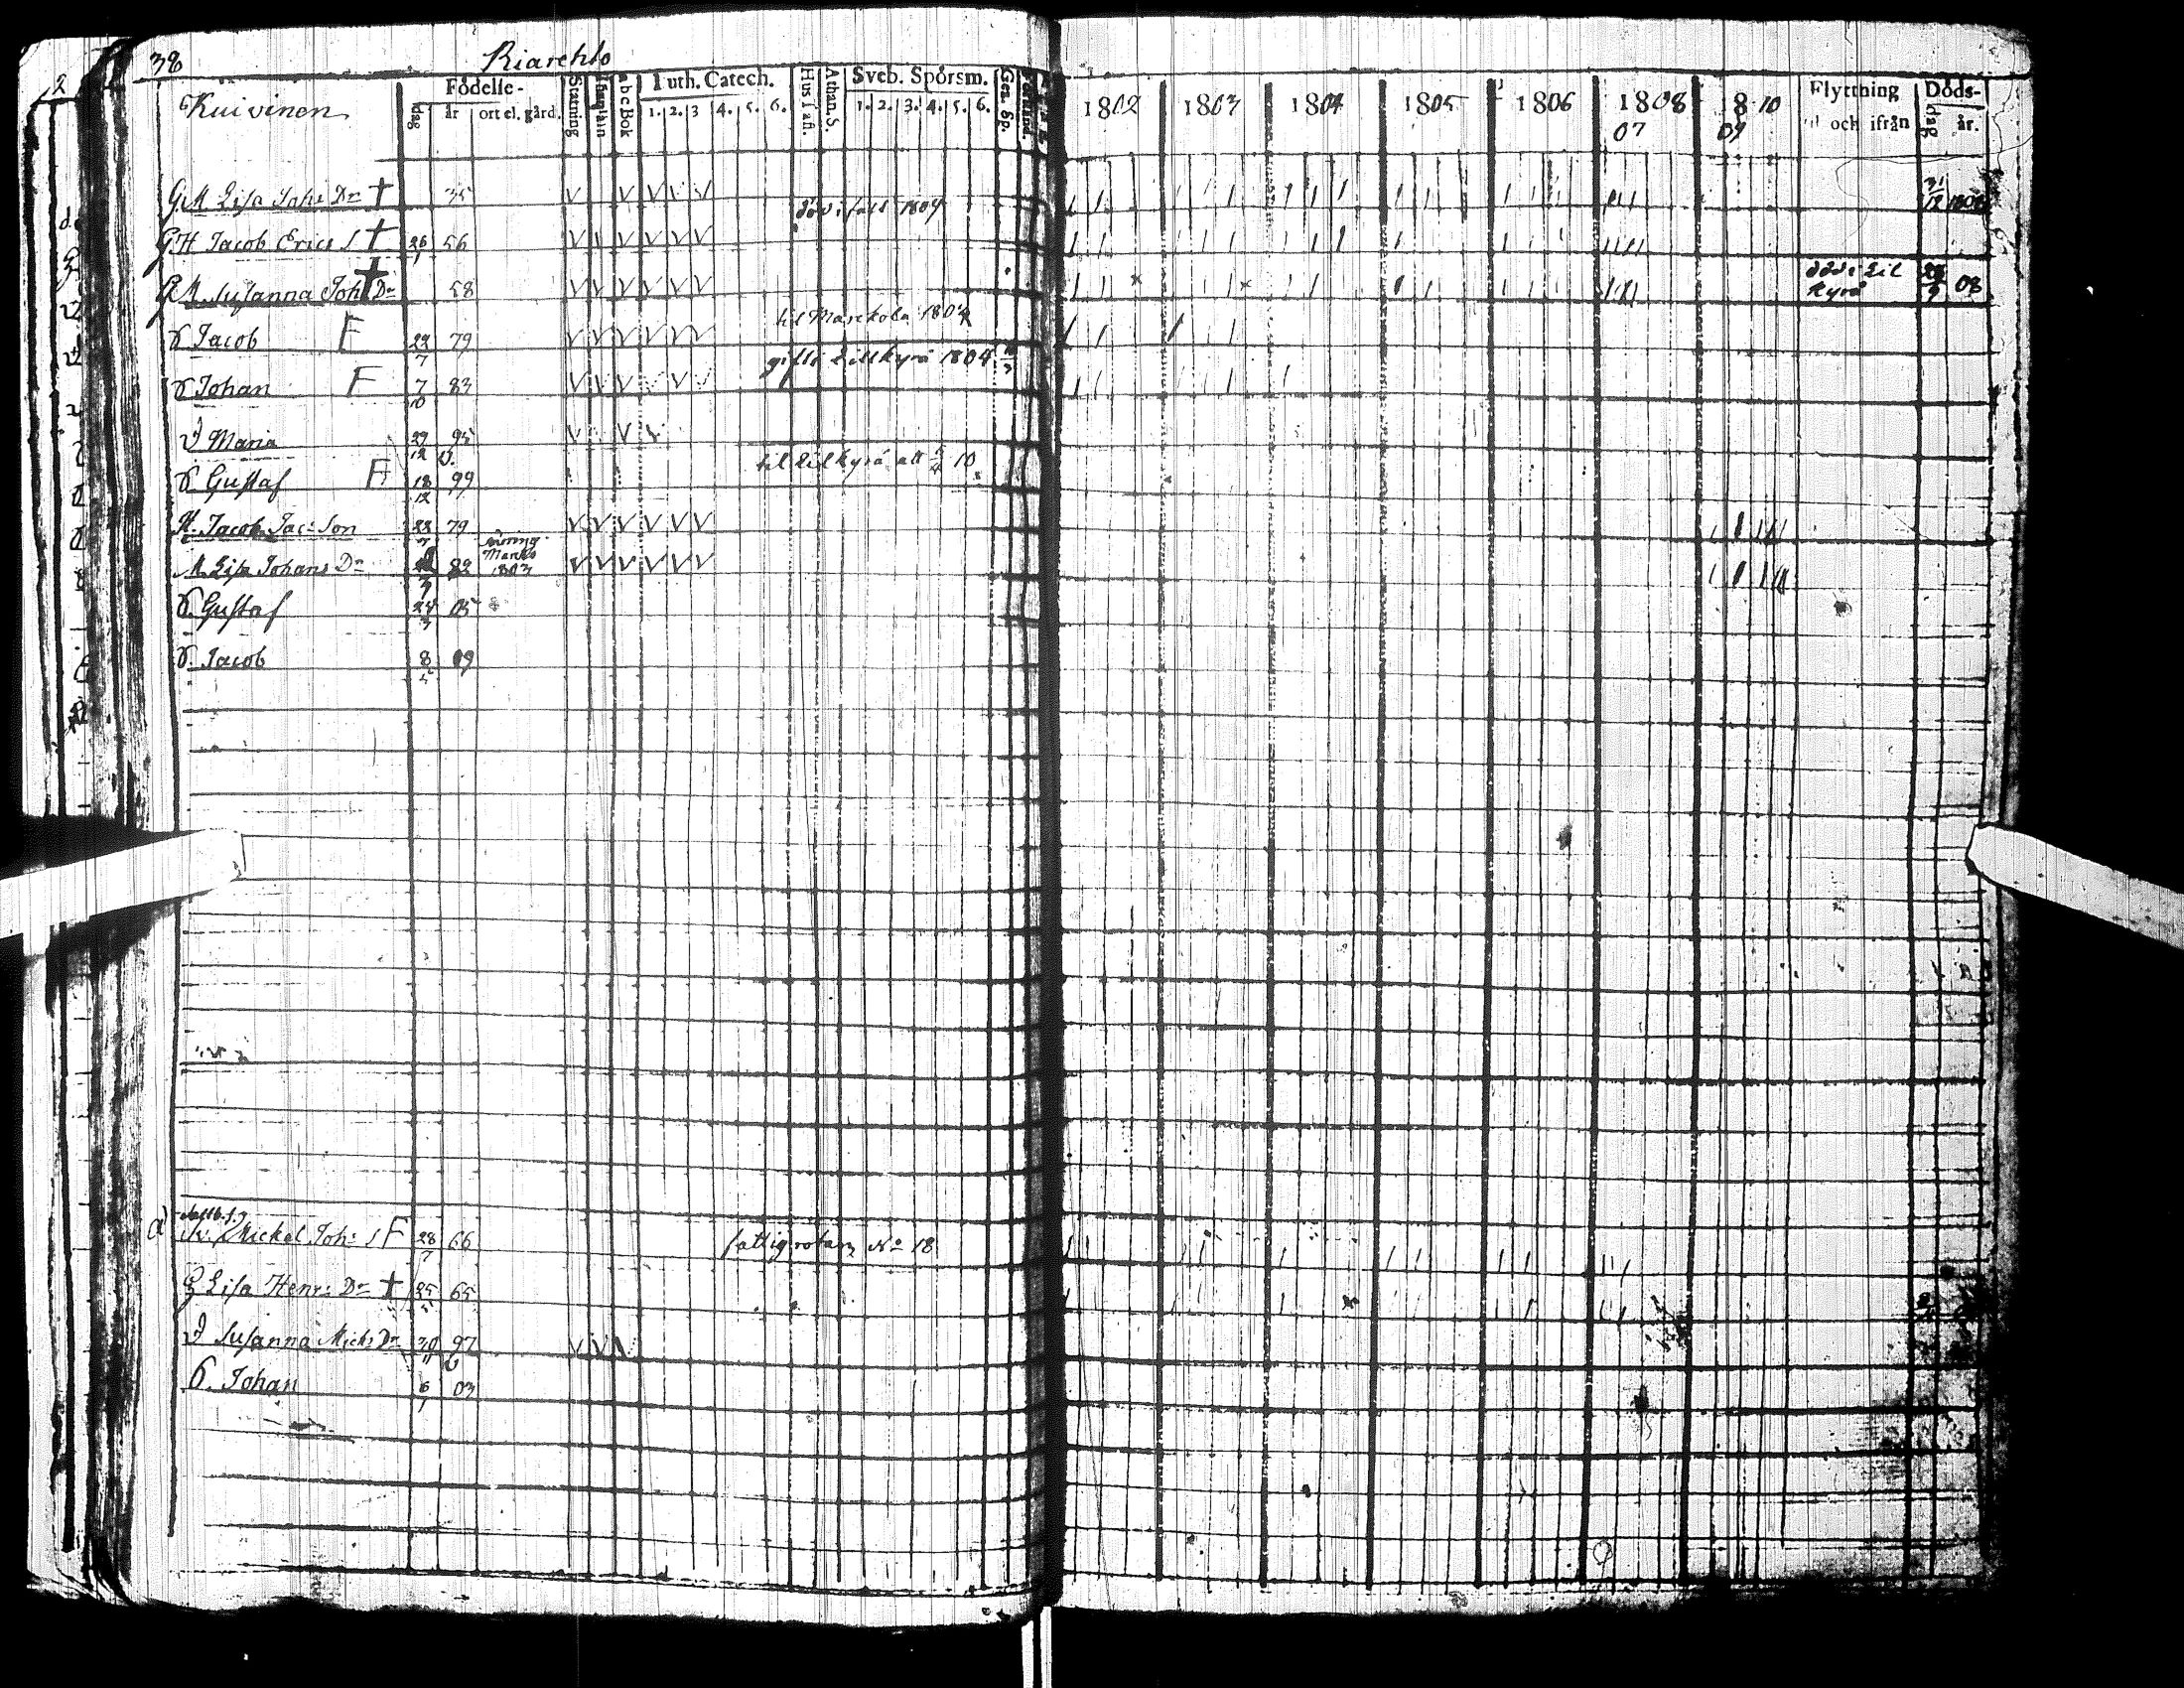 38 Riarehlo
Kuivinen
Födelse-
dag år ort el. gård.
Stafning
abcBok
Luth. Catech.
1. 2. 3 4. 5. 6.
Hustafl.
Athan. S.
Sveb. Spörsm.
1. 2. 3. 4. 5. 6.
Gen. Sp.
1802 1803 1804 1805 1806 1808 1810
07 09
Flyttning
til och ifrån
Döds-
dag år.
G.M Lisa Joh: Dr † 35 V V V V V 31/12 1808
död i fält 1809
G.H Jacob Erics S † 26 56 V V V V V V
G.M. Susanna Joh: Dr † 58 V V V V V V död i Lil Kyrå 08
til Marckola
S Jacob F 22/7 79 V V V V V V
gift i Lillkyrå 1804
S Johan F 7/10 83 V V V V V V
D Maria 29/12 95 V V V
til Lilkyrå att 5/4 10
S. Gustaf F 18/12 99
H. Jacob Jac: Son 22/7 79 V V V V V V
M. Lisa Johans Dr 82 1803 V V V V V V
S. Gustaf 24/3 05
S. Jacob 8/5 09
Mickel Joh: S F 28/7 66 fattigrotan No 18
Lisa Henr: Dr † 25/5 65
D Susanna Mick: Dr 30/11 97 V V V
S. Johan 6/1 03